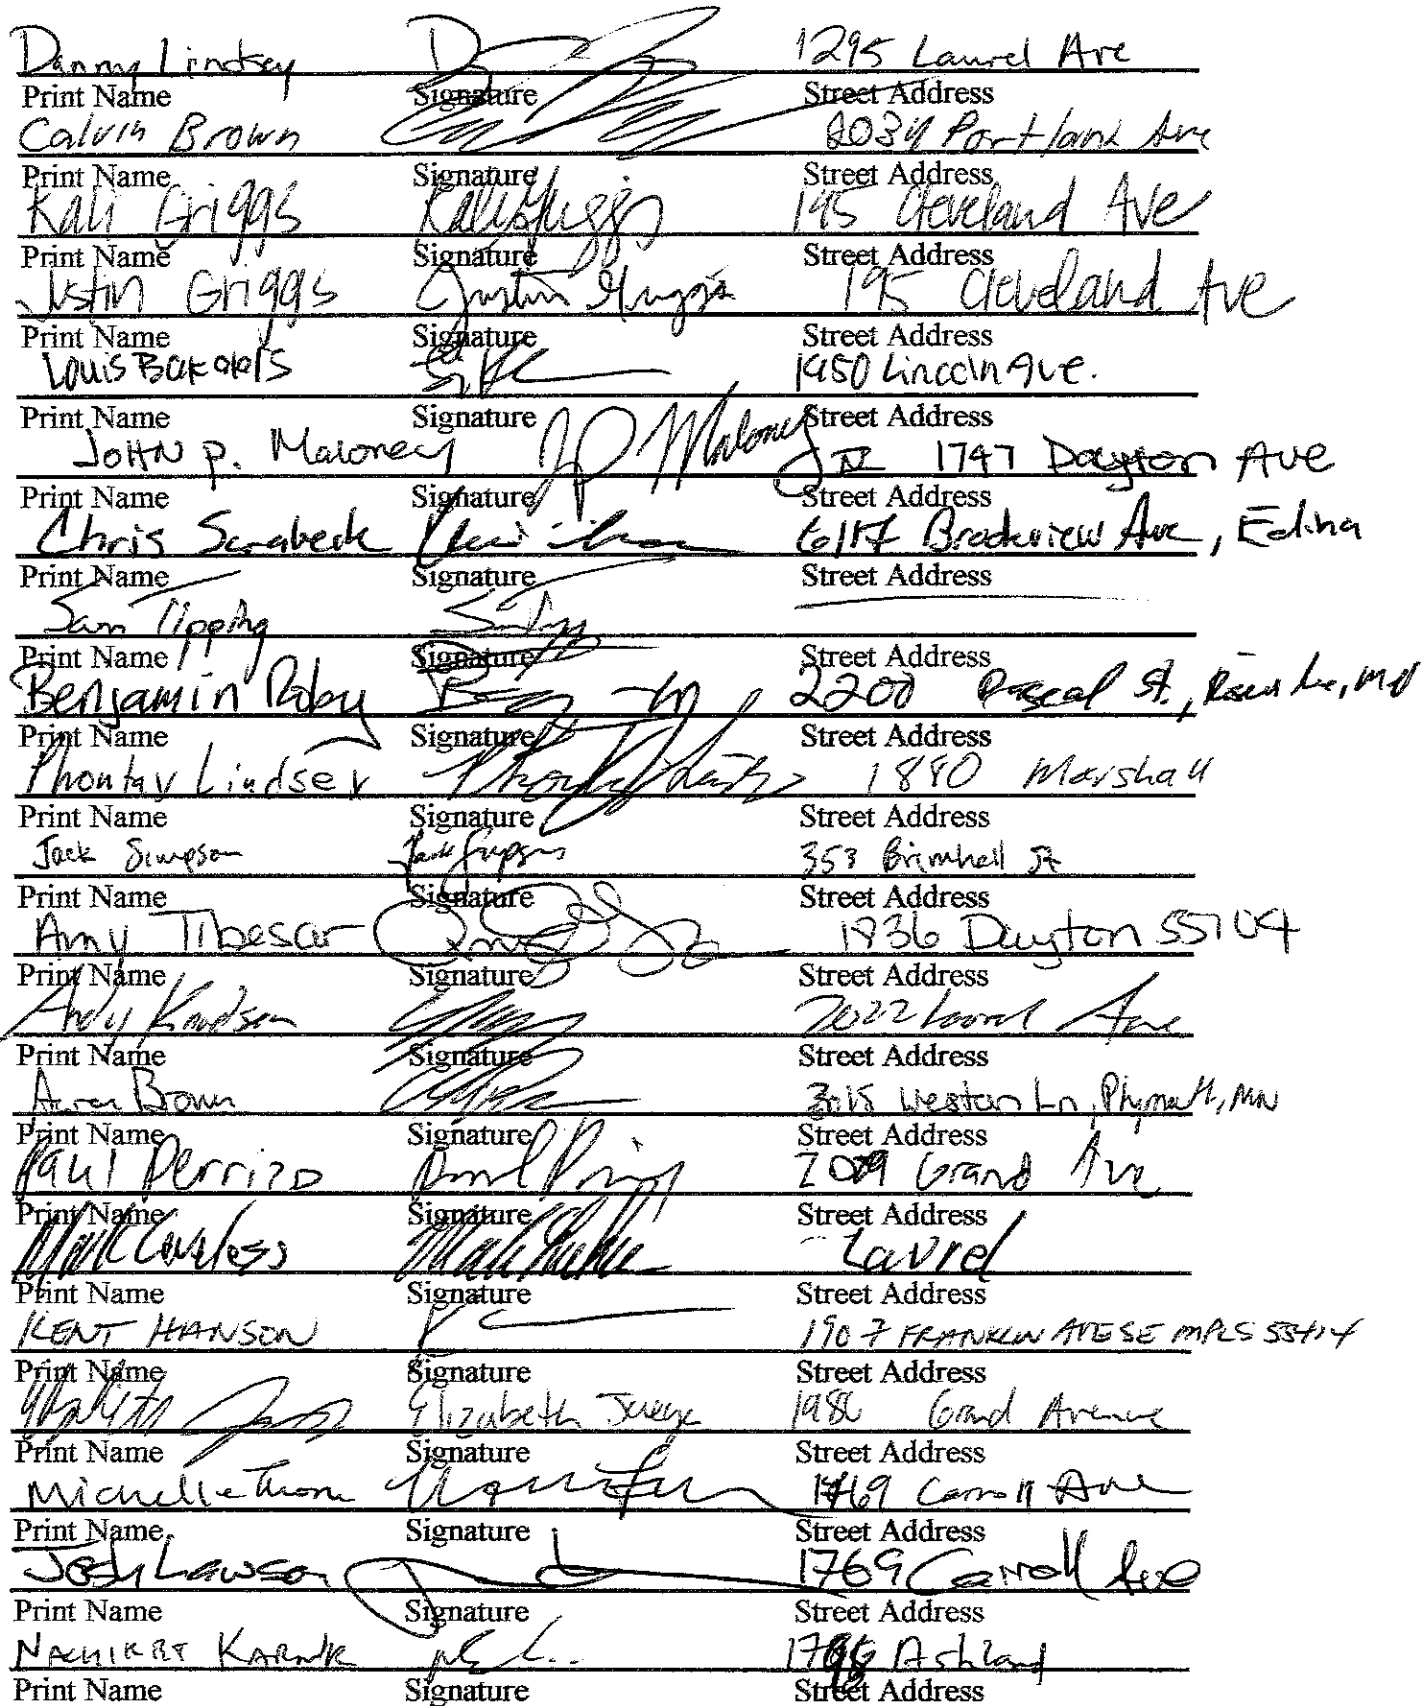 Danny Lindsey 1295 Laurel Ave
Print Name Signature Street Address
Calvin Brown 2034 Portland Ave
Print Name Signature Street Address
Kali Griggs Kali Griggs 195 Cleveland Ave
Print Name Signature Street Address
Justin Griggs Justin Griggs 195 Cleveland Ave
Print Name Signature Street Address
Louis 1950 Lincoln Ave.
Print Name Signature Street Address
JOHN P. Maloney JP Maloney IV 1747 Dayton Ave
Print Name Signature Street Address
Chris Ave, Edina
Print Name Signature Street Address
Sam Tipping
Print Name Signature Street Address
Benjamin 2200 Pascal St.,
Print Name Signature Street Address
Phontav Lindsey 1880 Marshall
Print Name Signature Street Address
Jack Simpson Jack Simpson 353 Brimhall St
Print Name Signature Street Address
Amy Tibesar 1936 Dayton 55104
Print Name Signature Street Address
Andy Knudsen 2022 Laurel Ave
Print Name Signature Street Address
Aaron Brown Weston Ln, Plymouth, MN
Print Name Signature Street Address
Paul Perrizo Grand Ave
Print Name Signature Street Address
Mark Laurel
Print Name Signature Street Address
KENT HANSON 1907 FRANKLIN AVE SE MPLS 55414
Print Name Signature Street Address
Elizabeth Grand Avenue
Print Name Signature Street Address
Michelle Carroll Ave
Print Name Signature Street Address
Josh Lawson 1769 Carroll Ave
Print Name Signature Street Address
NACHIKET KARNIK Ashland
Print Name Signature Street Address